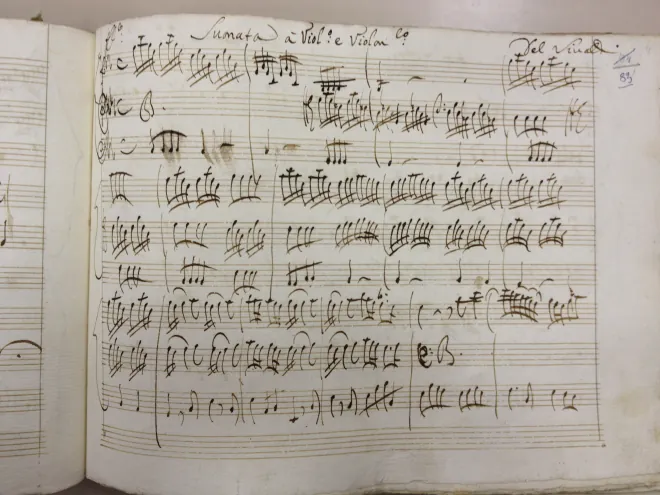 Suonata à Viol.º e Violon.lº
Del Vivaldi.
83